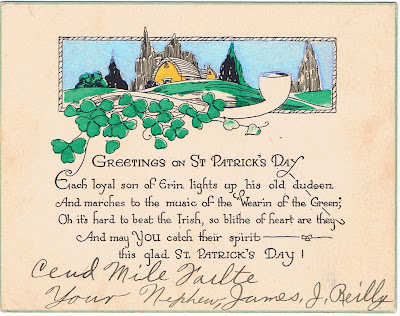 GREETINGS ON ST PATRICK'S DAY
Each loyal son of Erin lights up his old dudeen
And marches to the music of the Wearin of the Green;
Oh it's hard to beat the Irish, so blithe of heart are they
And may YOU catch their spirit
this glad ST. PATRICK'S DAY!
Cead Mile Failte
Your Nephew, James, J, Reilly